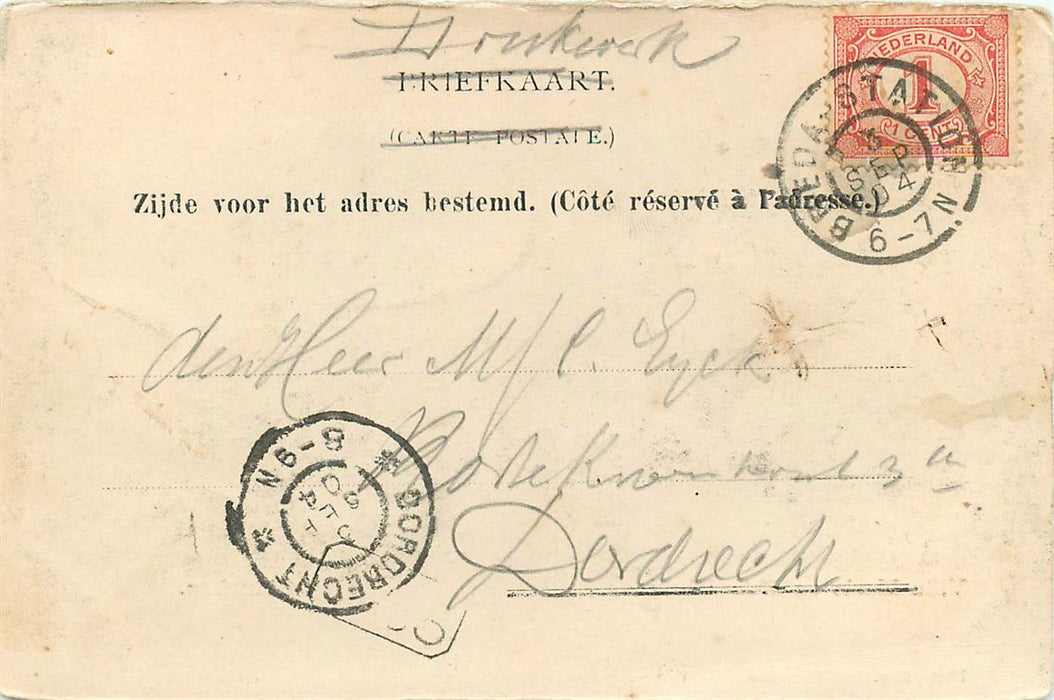 Drukwerk
BRIEFKAART.
(CARTE POSTALE.)
Zijde voor het adres bestemd. (Côté réservé à l'adresse.)
NEDERLAND
1
1 CENT
BREDA-STATION
5
SEP
04
6-7N
den Heer M/C. Eyck
3
Dordrecht
DORDRECHT
8-9N
SEP
04